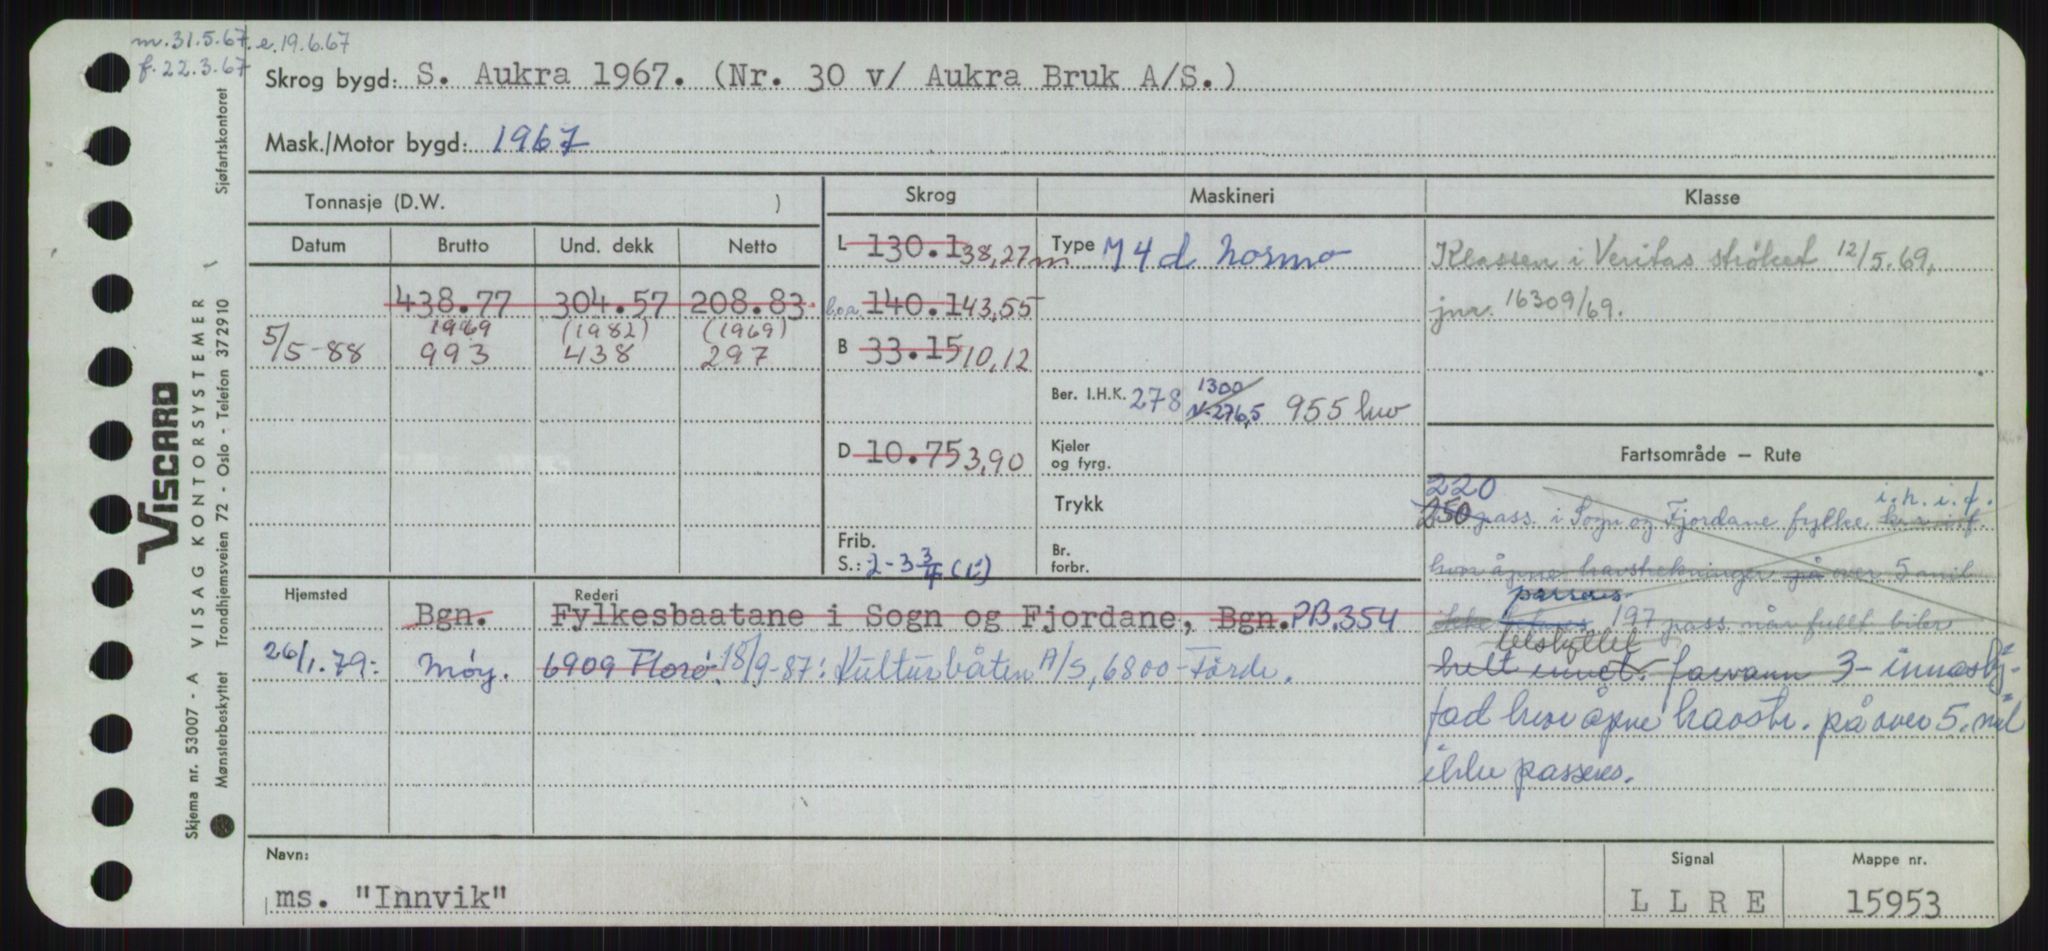 m. 31.5.67. e. 19.6.67
f. 22.3.67
Skrog bygd: S. Aukra 1967. (Nr. 30 v/ Aukra Bruk A/S.)
Mask./Motor bygd: 1967
Tonnasje (D.W. )
Skrog
Maskineri
Klasse
Datum Brutto Und. dekk Netto
438.77 304.57 208.83
1969 (1982) (1969)
5/5-88 993 438 297
L 130.1 38,27 m
boa. 140.1 43,55
B 33.15 10,12
D 10.75 3,90
Frib.
S.: 2-3 3/4 (i)
Type M 4 d Normo
Ber. I.H.K. 278 1300 N.276,5 955 hw
Kjeler
og fyrg.
Trykk
Br.
forbr.
Klassen i Veritas strøket 12/5.69,
jnr. 16309/69.
Fartsområde – Rute
220 i.h.i.f.
250 pass. i Sogn og Fjordane fylke
hvor åpne havstrekninger på over 5 mil
passeres
ikke 197 pass. når fullt biler
helt innel. farvann 3- innaskj-
fad hvor åpne havstr. på over 5. mil
ikke passeres.
Hjemsted
Rederi
Bgn. Fylkesbaatane i Sogn og Fjordane, Bgn. PB.354
26/1.79: Møy. 6909 Florø. 18/9-87: Kulturbåten A/S, 6800-Førde.
Navn:
ms. "Innvik"
Signal
L L R E
Mappe nr.
15953
VISCARD
Skjema nr. 53007 - A VISAG KONTORSYSTEMER
Mønsterbeskyttet Trondhjemsveien 72 - Oslo - Telefon 372910 Sjøfartskontoret